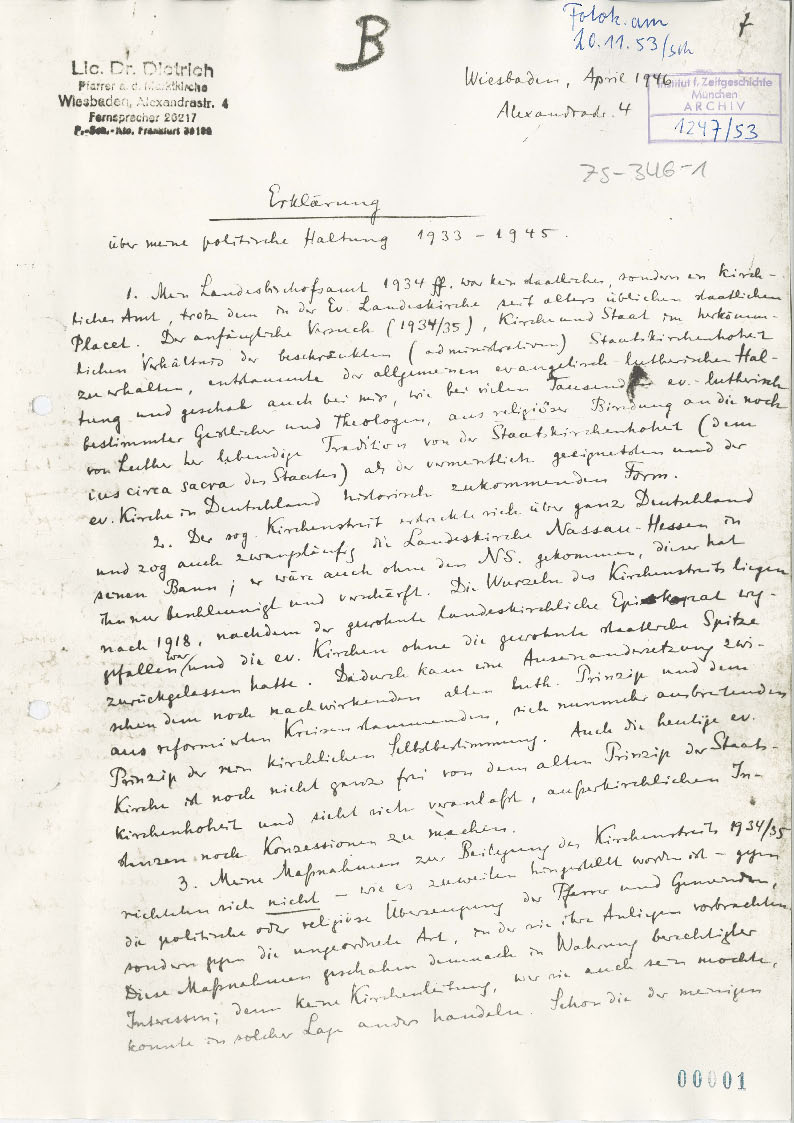 B
Fotok. am
20.11.53/sch
7
Lic. Dr. Dietrich
Pfarrer a. d. Marktkirche
Wiesbaden, Alexandrastr. 4
Fernsprecher 26217
P.-Sch.-Kto. Frankfurt
Wiesbaden, April 1946
Alexandrastr. 4
Institut f. Zeitgeschichte
München
ARCHIV
1247/53
ZS-346-1
Erklärung
über meine politische Haltung 1933 – 1945.
1. Mein Landesbischofsamt 1934 ff. war kein staatliches, sondern ein kirch-
liches Amt, trotz dem in der Ev. Landeskirche seit alters üblichen staatlichen
Placet. Der anfängliche Versuch (1934/35), Kirche und Staat im herkömm-
lichen Verhältnis der beschränkten (administrativen) Staatskirchenhoheit
zu erhalten, entstammte der allgemeinen evangelisch-lutherischen Hal-
tung und geschah auch bei mir, wie bei vielen Tausend ev.-lutherisch
bestimmter Geistlicher und Theologen, aus religiöser Bindung an die noch
von Luther her lebendige Tradition von der Staatskirchenhoheit (dem
ius circa sacra des Staates) als der vermeintlich geeignetsten und der
ev. Kirche in Deutschland historisch zukommenden Form.
2. Der sog. Kirchenstreit erstreckte sich über ganz Deutschland
und zog auch zwangsläufig die Landeskirche Nassau-Hessen in
seinen Bann; er wäre auch ohne den NS. gekommen, dieser hat
ihn nur beschleunigt und verschärft. Die Wurzeln des Kirchenstreits liegen
nach 1918, nachdem der gewohnte landeskirchliche Episkopat weg-
gefallen war und die ev. Kirchen ohne die gewohnte staatliche Spitze
zurückgelassen hatte. Dadurch kam eine Auseinandersetzung zwi-
schen dem noch nachwirkenden alten luth. Prinzip und dem
aus reformierten Kreisen stammenden, sich nunmehr ausbreitenden
Prinzip der rein kirchlichen Selbstbestimmung. Auch die heutige ev.
Kirche ist noch nicht ganz frei von dem alten Prinzip der Staats-
kirchenhoheit und sieht sich veranlaßt, außerkirchlichen In-
stanzen noch Konzessionen zu machen.
3. Meine Maßnahmen zur Beilegung des Kirchenstreits 1934/35
richteten sich nicht – wie es zuweilen hingestellt worden ist – gegen
die politische oder religiöse Überzeugung der Pfarrer und Gemeinden,
sondern gegen die ungeordnete Art, in der sie ihre Anliegen vorbrachten.
Diese Maßnahmen geschahen demnach in Wahrung berechtigter
Interessen; denn keine Kirchenleitung, wer sie auch sein mochte,
konnte in solcher Lage anders handeln. Schon die der meinigen
00001